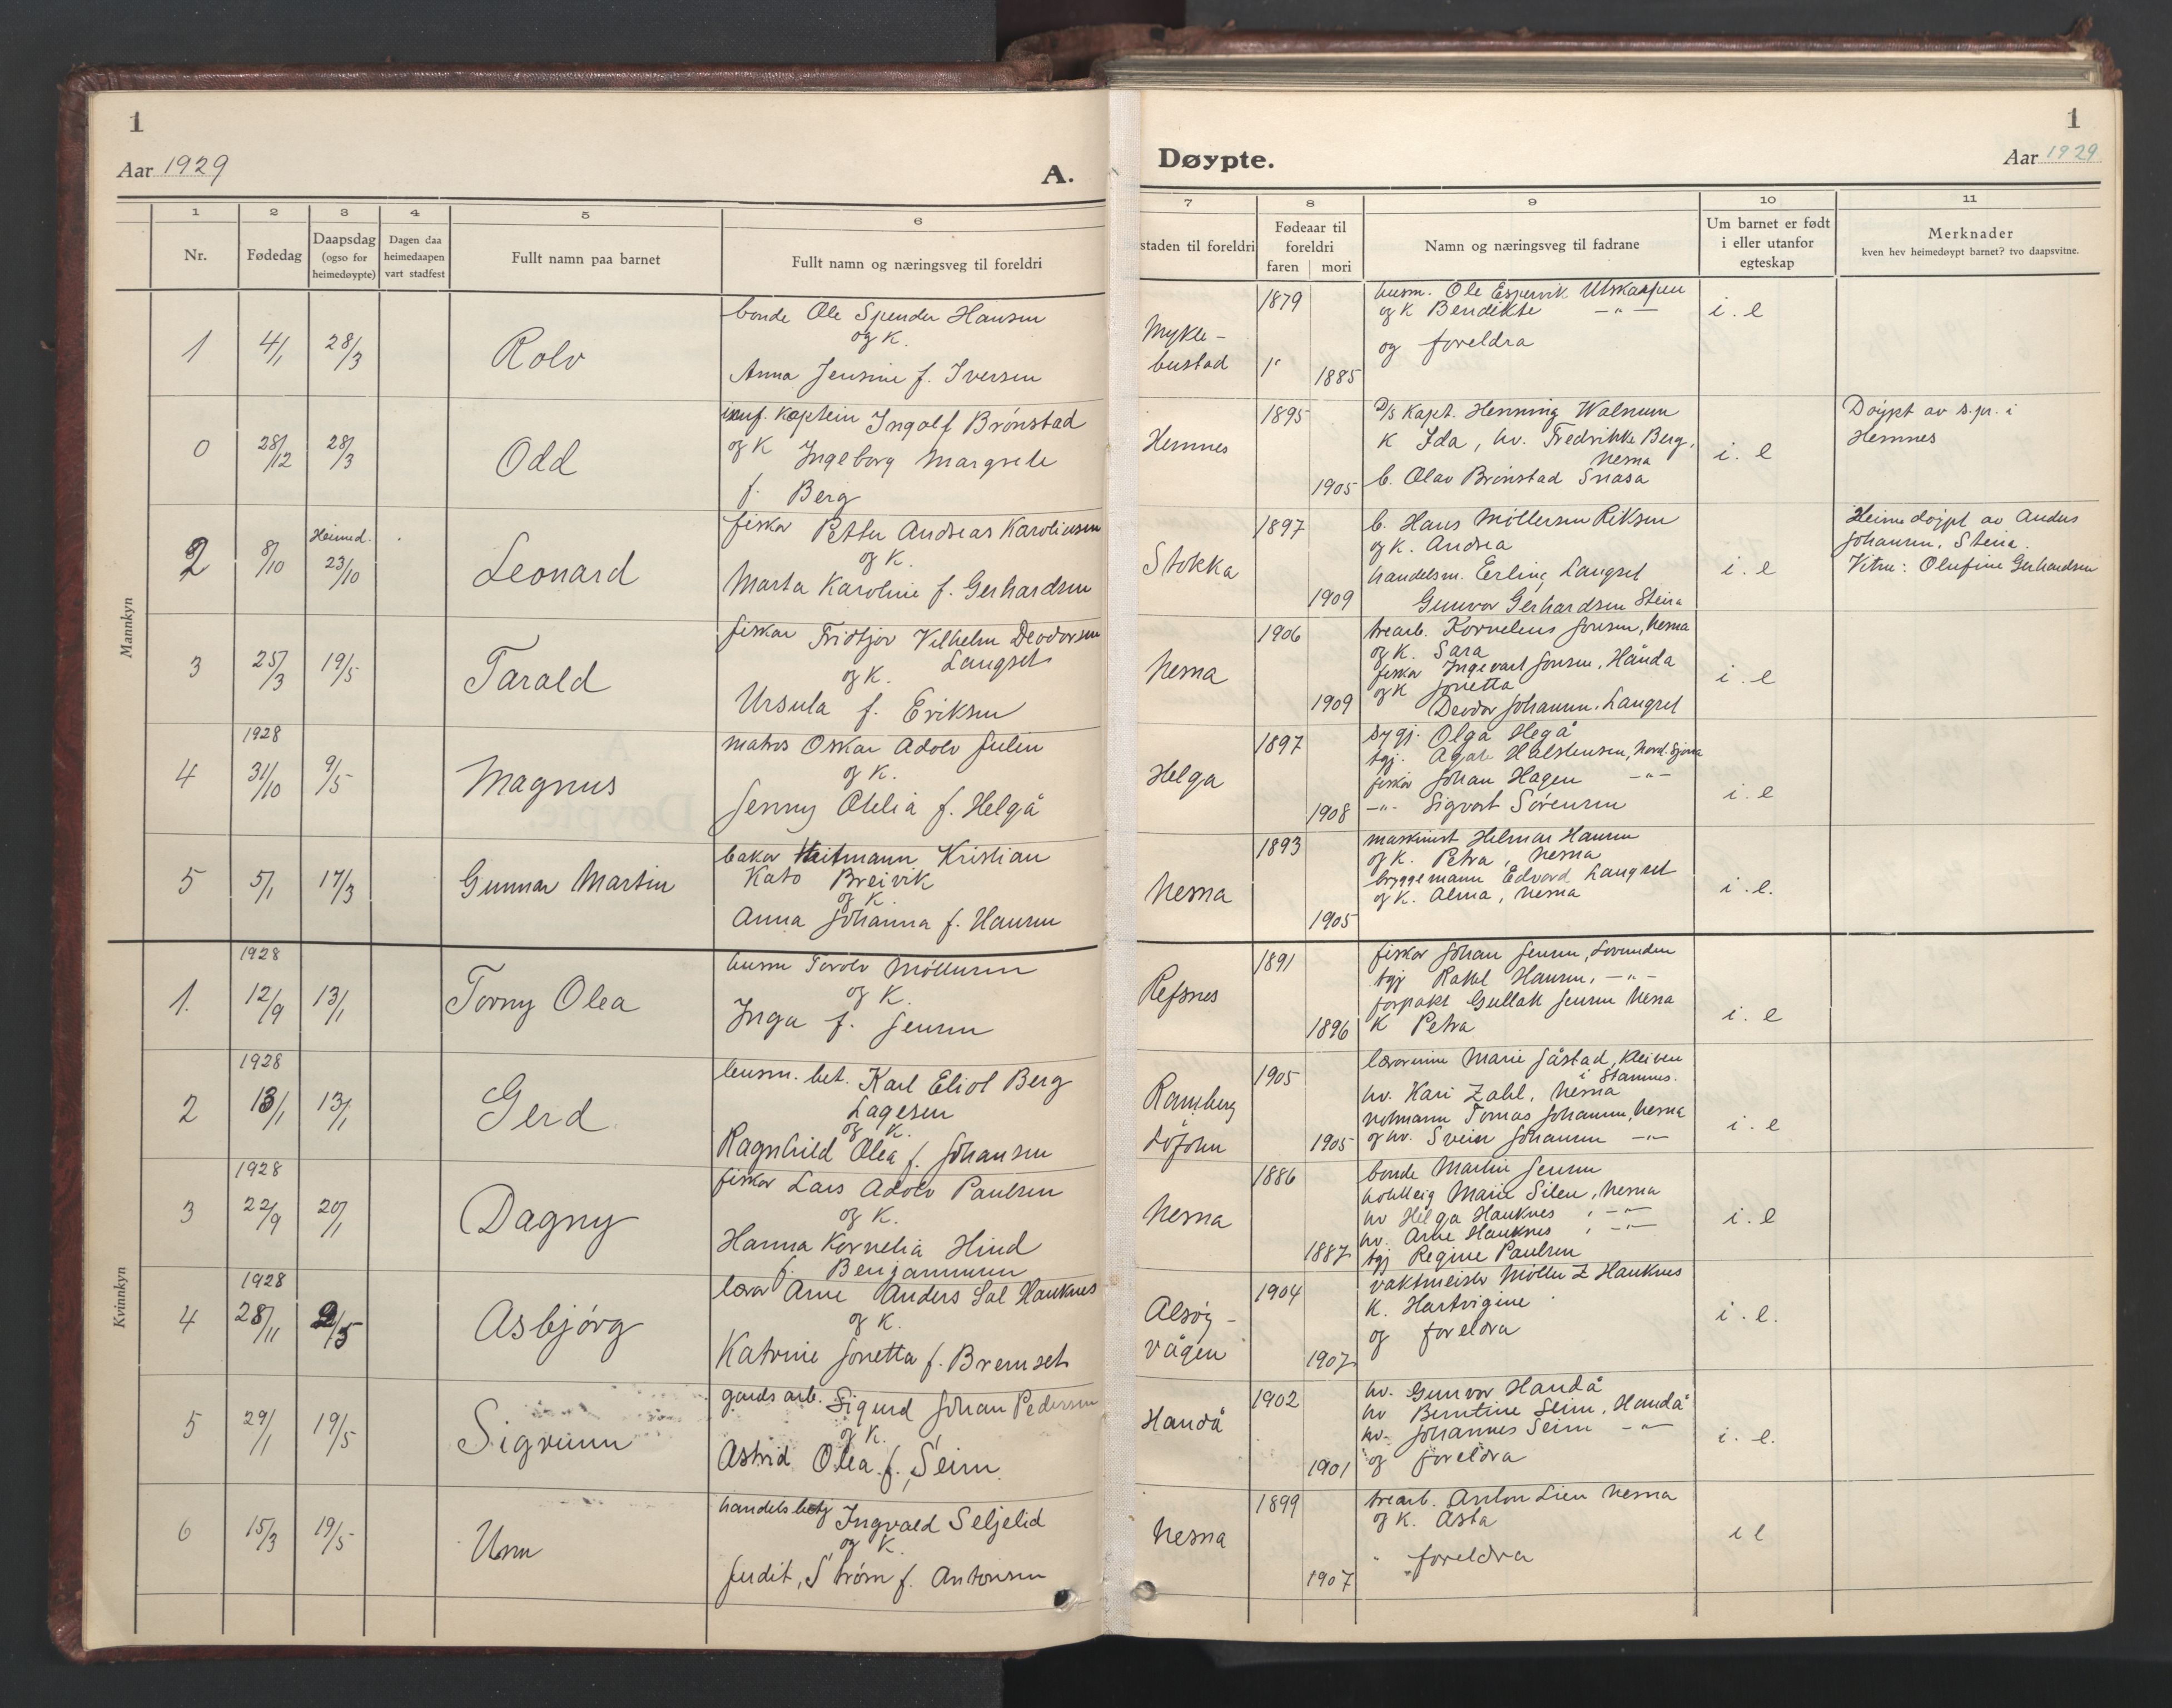 1
Aar 1929
A.
1 2 3 4 5 6
Nr.
Fødedag
Daapsdag
(ogso for
heimedøypte)
Dagen daa
heimedaapen
vart stadfest
Fullt namn paa barnet
Fullt namn og næringsveg til foreldri
Mannkyn
1 4/1 28/3 Rolv
bonde Ole Spender Hansen
og K.
Anna Jensine f. Iversen
0 28/12 28/3 Odd
kaptein Ingolf Brønstad
og K Ingeborg Margrete
f. Berg
2 8/10 Heimed. 23/10 Leonard
fiskar Petter Andreas Karoliussen
og K.
Marta Karoline f. Gerhardsen
3 25/3 19/5 Tarald
fiskar Fridtjov Vilhelm Deodorsen
Langset
og K.
Ursula f. Eriksen
4 1928 31/10 9/5 Magnus
matros Oskar Adolv Julin
og K.
Jenny Otelia f. Helgå
5 5/1 17/3 Gunnar Martin
bakar Heitmann Kristian
Kato Breivik
og K.
Anna Johanna f. Hansen
Kvinnkyn
1. 1928 12/9 13/1 Torny Olea
husm Torolv Möllersen
og K.
Inga f. Jensen
2 1928 13/1 13/1 Gerd
husm. bet. Karl Eliot Berg
Lagesen
og K.
Ragnhild Olea f. Johansen
3 1928 22/9 20/1 Dagny
fiskar Lars Adolv Paulsen
og K.
Hanna Kornelia Hind
f. Benjaminsen
4 1928 28/11 2/5 Asbjørg
lærar Arne Anders Sal Hauknes
og K.
Katrine Jonetta f. Bremset
5 29/1 19/5 Sigrunn
gards arb. Sigurd Johan Pedersen
og K.
Astrid Olea f. Seim
6 15/3 19/5 Unn
handelsbetj Ingvald Seljelid
og K.
Judit, Strøm f. Antonsen
1
Døypte.
Aar 1929
7 8 9 10 11
staden til foreldri
Fødeaar til
foreldri
faren mori
Namn og næringsveg til fadrane
Um barnet er født
i eller utanfor
egteskap
Merknader
kven hev heimedøypt barnet? tvo daapsvitne.
Mykle-
bustad
1879
1885
husm. Ole Espervik Utskarpen
og K Bendikte — " —
og foreldra
i. e
Hemnes
1895
1905
D/S Kapt. Henning Walnum
K Ida, hv. Fredrikke Berg,
Nesna
b. Olav Brønstad Snåsa
i. e
Døypt av s.pr. i
Hemnes
Stokka
1897
1909
b. Hans Möllersen Riksen
og K. Andrea
handelsm. Erling Langset
Gunvor Gerhardsen Steira
i. e
Heimedøypt av Anders
Johansen, Steira.
Vitne: Olufine Gerhardsen
Nesna
1906
1909
trearb. Kornelius Jonsen, Nesna
og K. Sara
fiskar Ingevart Jonsen, Handa
og K Jonetta
Deodor Johansen, Langset
i. e
Helga
1897
1908
sygj. Olga Hegå
tgj. Agate Halstensen, Nord-Sjona
fiskar Johan Hagen — " —
— " — Sigvart Sørensen
i. e
Nesna
1893
1905
maskinist Helmar Hansen
og K. Petra, Nesna
bryggemann Edvard Langset
og K. Alma, Nesna
i. e.
Refsnes
1891
1896
fiskar Johan Jensen, Lovunden
tgj Rakel Hansen, — " —
forpakt Gullak Jensen Nesna
K Petra
i. e
Ramberg
1905
1905
lærarinne Marie Jåstad, Kleiven
i Stamnes.
hv. Kari Zahl, Nesna
notmann Tomas Johansen, Nesna
og hv. Svein Johansen — " —
i. e
Nesna
1886
1887
bonde Martin Jensen
Marie Silen, Nesna
hv Helga Hauknes, — " —
hv. Arne Hauknes, — " —
tgj Regine Paulsen
i. e
Alsøy-
vågen
1904
1907
vaktmeister Møller Z Hauknes
K. Hartvigine
og foreldra
i. e.
Handå
1902
1901
hv. Gunvor Handå
hv Berntine Seim, Handå
hv. Johannes Seim — " —
og foreldra
i. e.
Nesna
1899
1907
trearb. Anton Lien Nesna
og K. Asta
" foreldra
i e